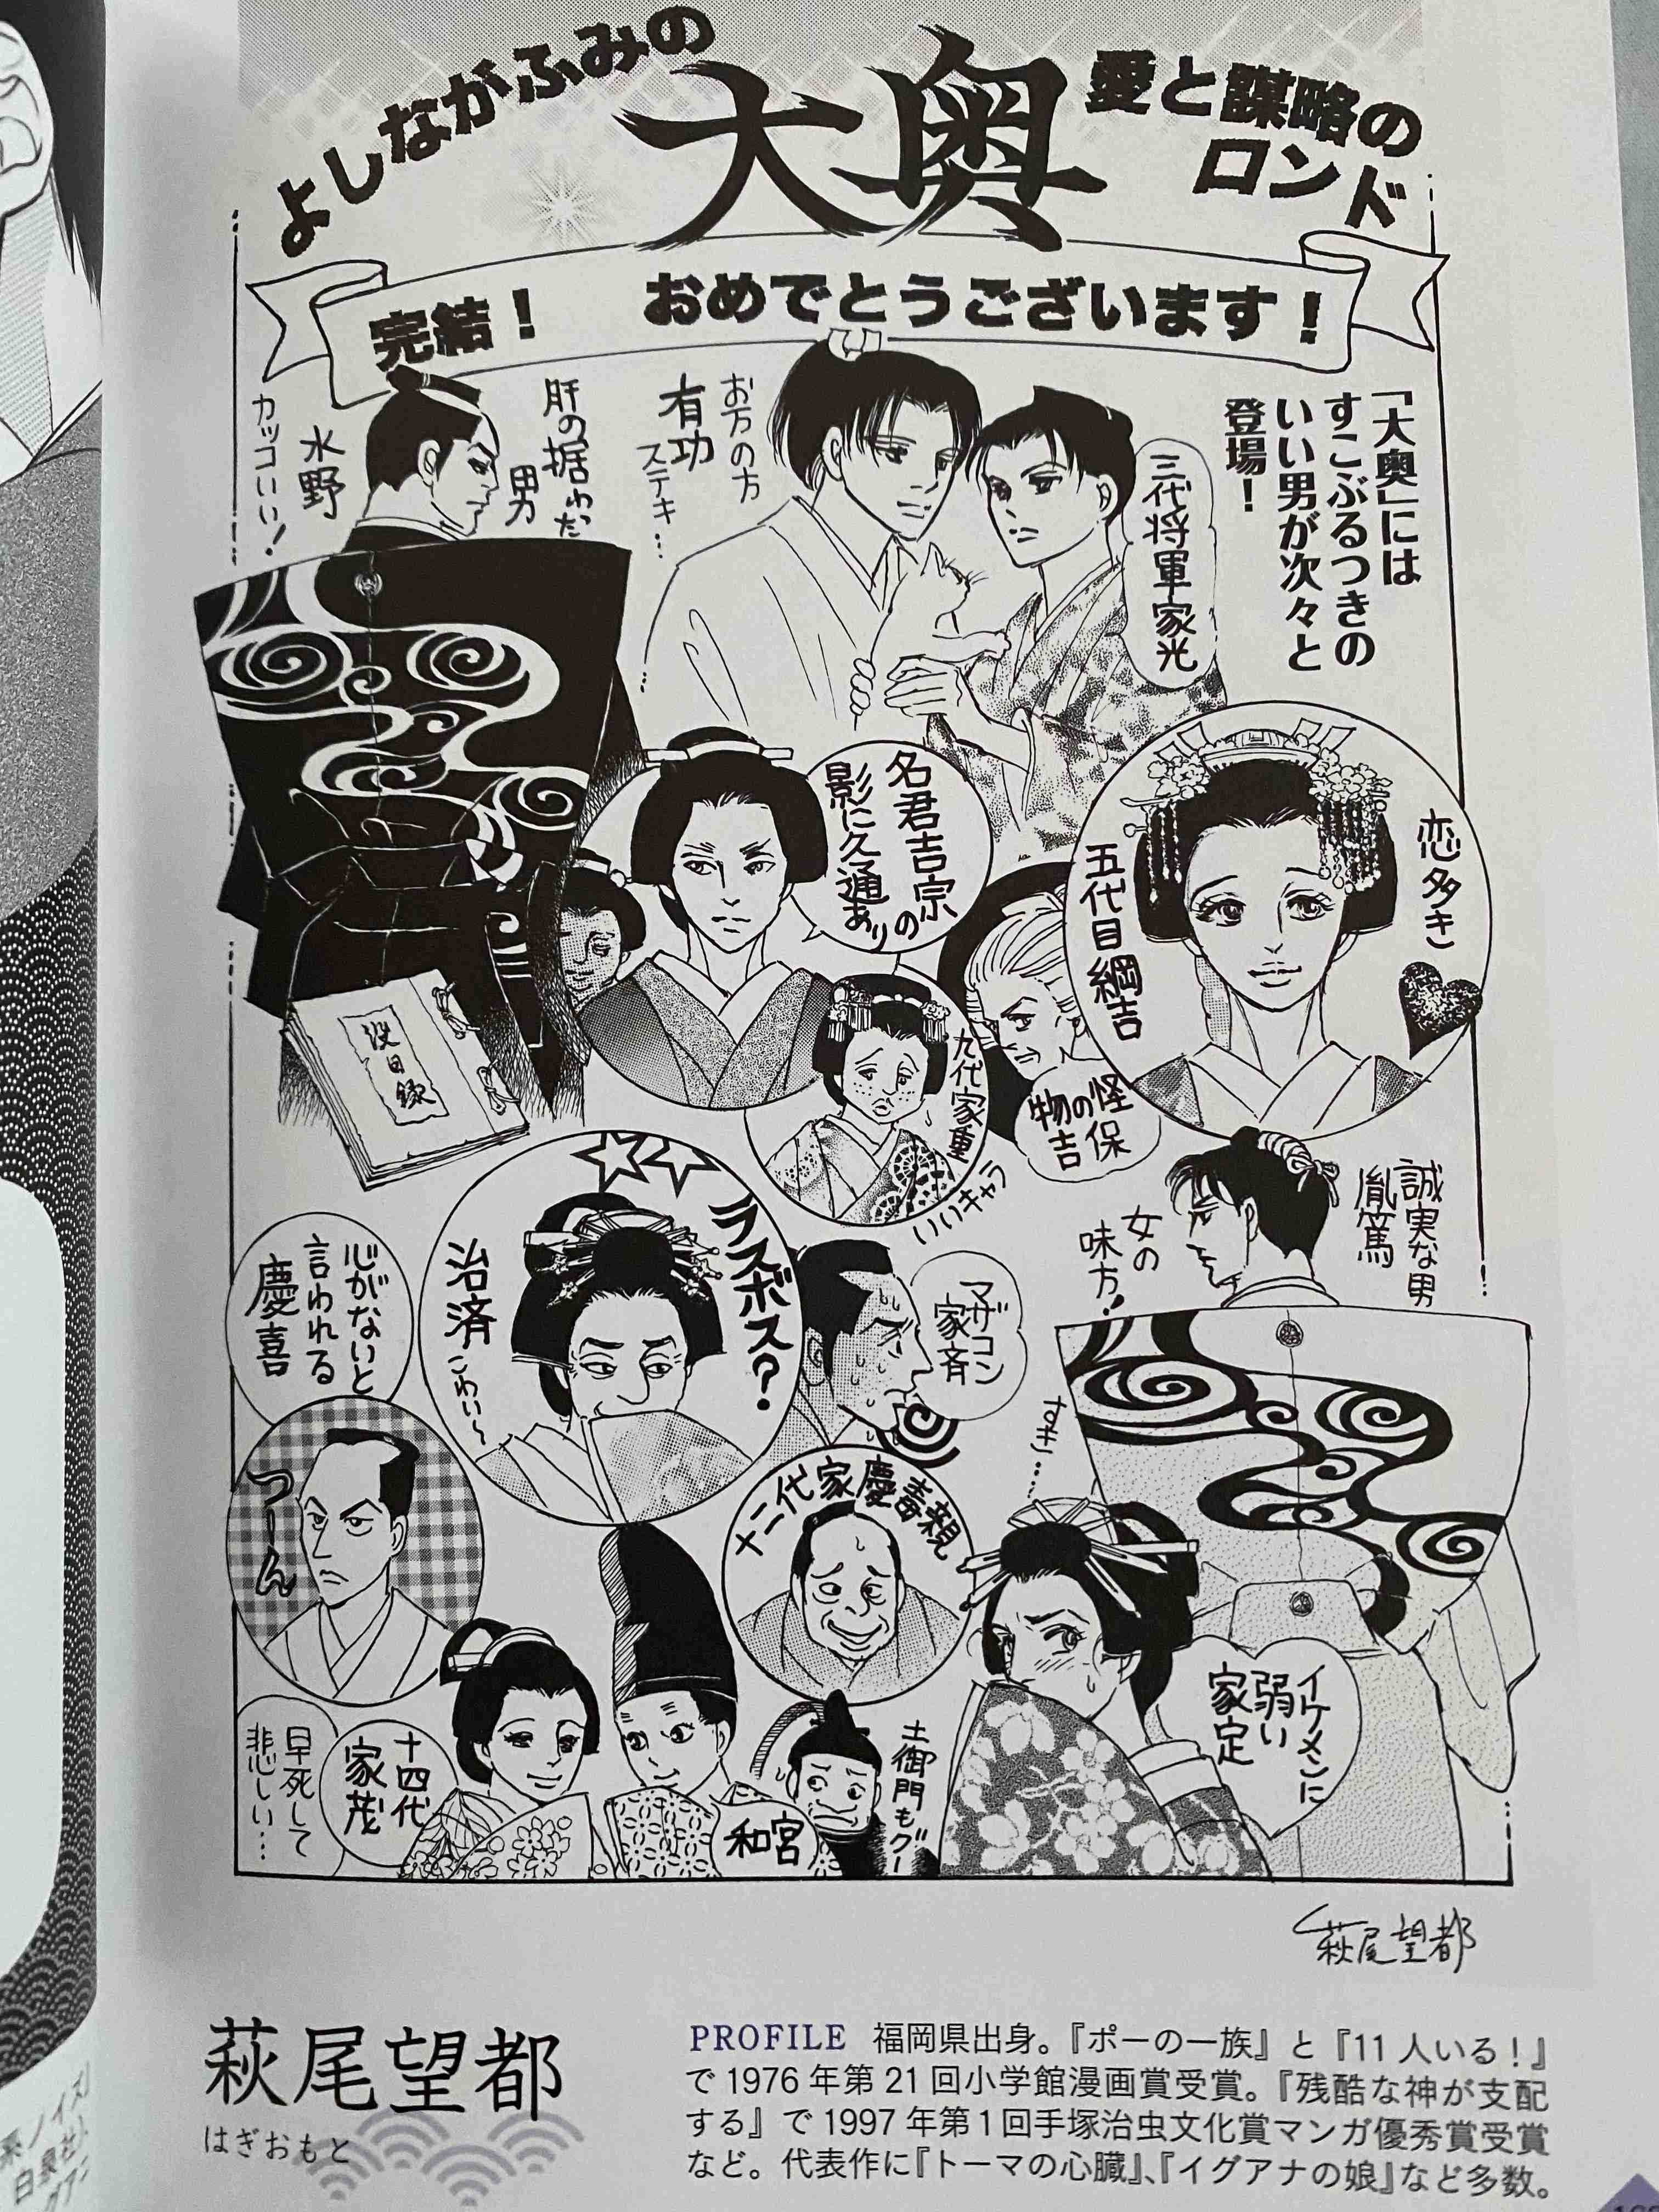 よしながふみの
大奥
愛と謀略の
ロンド
完結！　おめでとうございます！
「大奥」には
すこぶるつきの
いい男が次々と
登場！
三代将軍家光
お万の方
有功
ステキ…
肝の据わった
男
水野
カッコいい！
恋多き
五代目綱吉
名君吉宗の
影に久通あり
没日録
怪
物の
吉保
九代家重
いいキャラ
誠実な男
胤篤
女の
味方！
ラスボス？
治済
こわい〜
マザコン
家斉
心がないと
言われる
慶喜
つーん
すき……
十二代家慶毒親
イケメンに
弱い
家定
土御門もグー
和宮
十四代
家茂
早死して
悲しい…
萩尾望都
萩尾望都
はぎおもと
PROFILE 福岡県出身。『ポーの一族』と『11人いる！』
で1976年第21回小学館漫画賞受賞。『残酷な神が支配
する』で1997年第1回手塚治虫文化賞マンガ優秀賞受賞
など。代表作に『トーマの心臓』、『イグアナの娘』など多数。